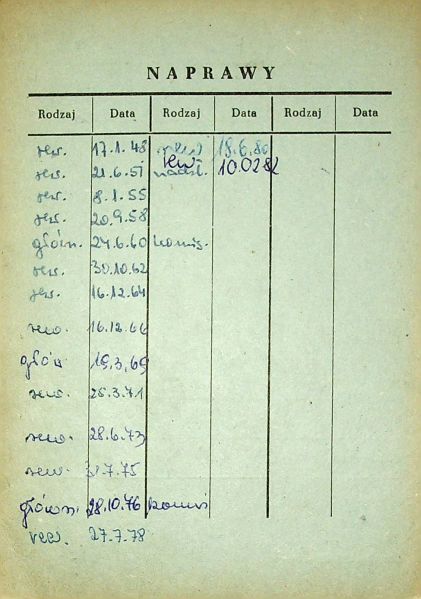 NAPRAWY
Rodzaj Data Rodzaj Data Rodzaj Data
rew. 17.1.48 rew 18.6.80
rew. 21.6.51 rew 10.02.82
rew. 8.1.55
rew. 20.9.58
główn. 24.6.60 komis.
rew. 30.10.62
rew. 16.12.64
rew. 16.12.66
główn 19.3.69
rew. 25.3.71
rew. 28.6.73
rew. 7.75
główn. 28.10.76 komis
rew. 27.7.78